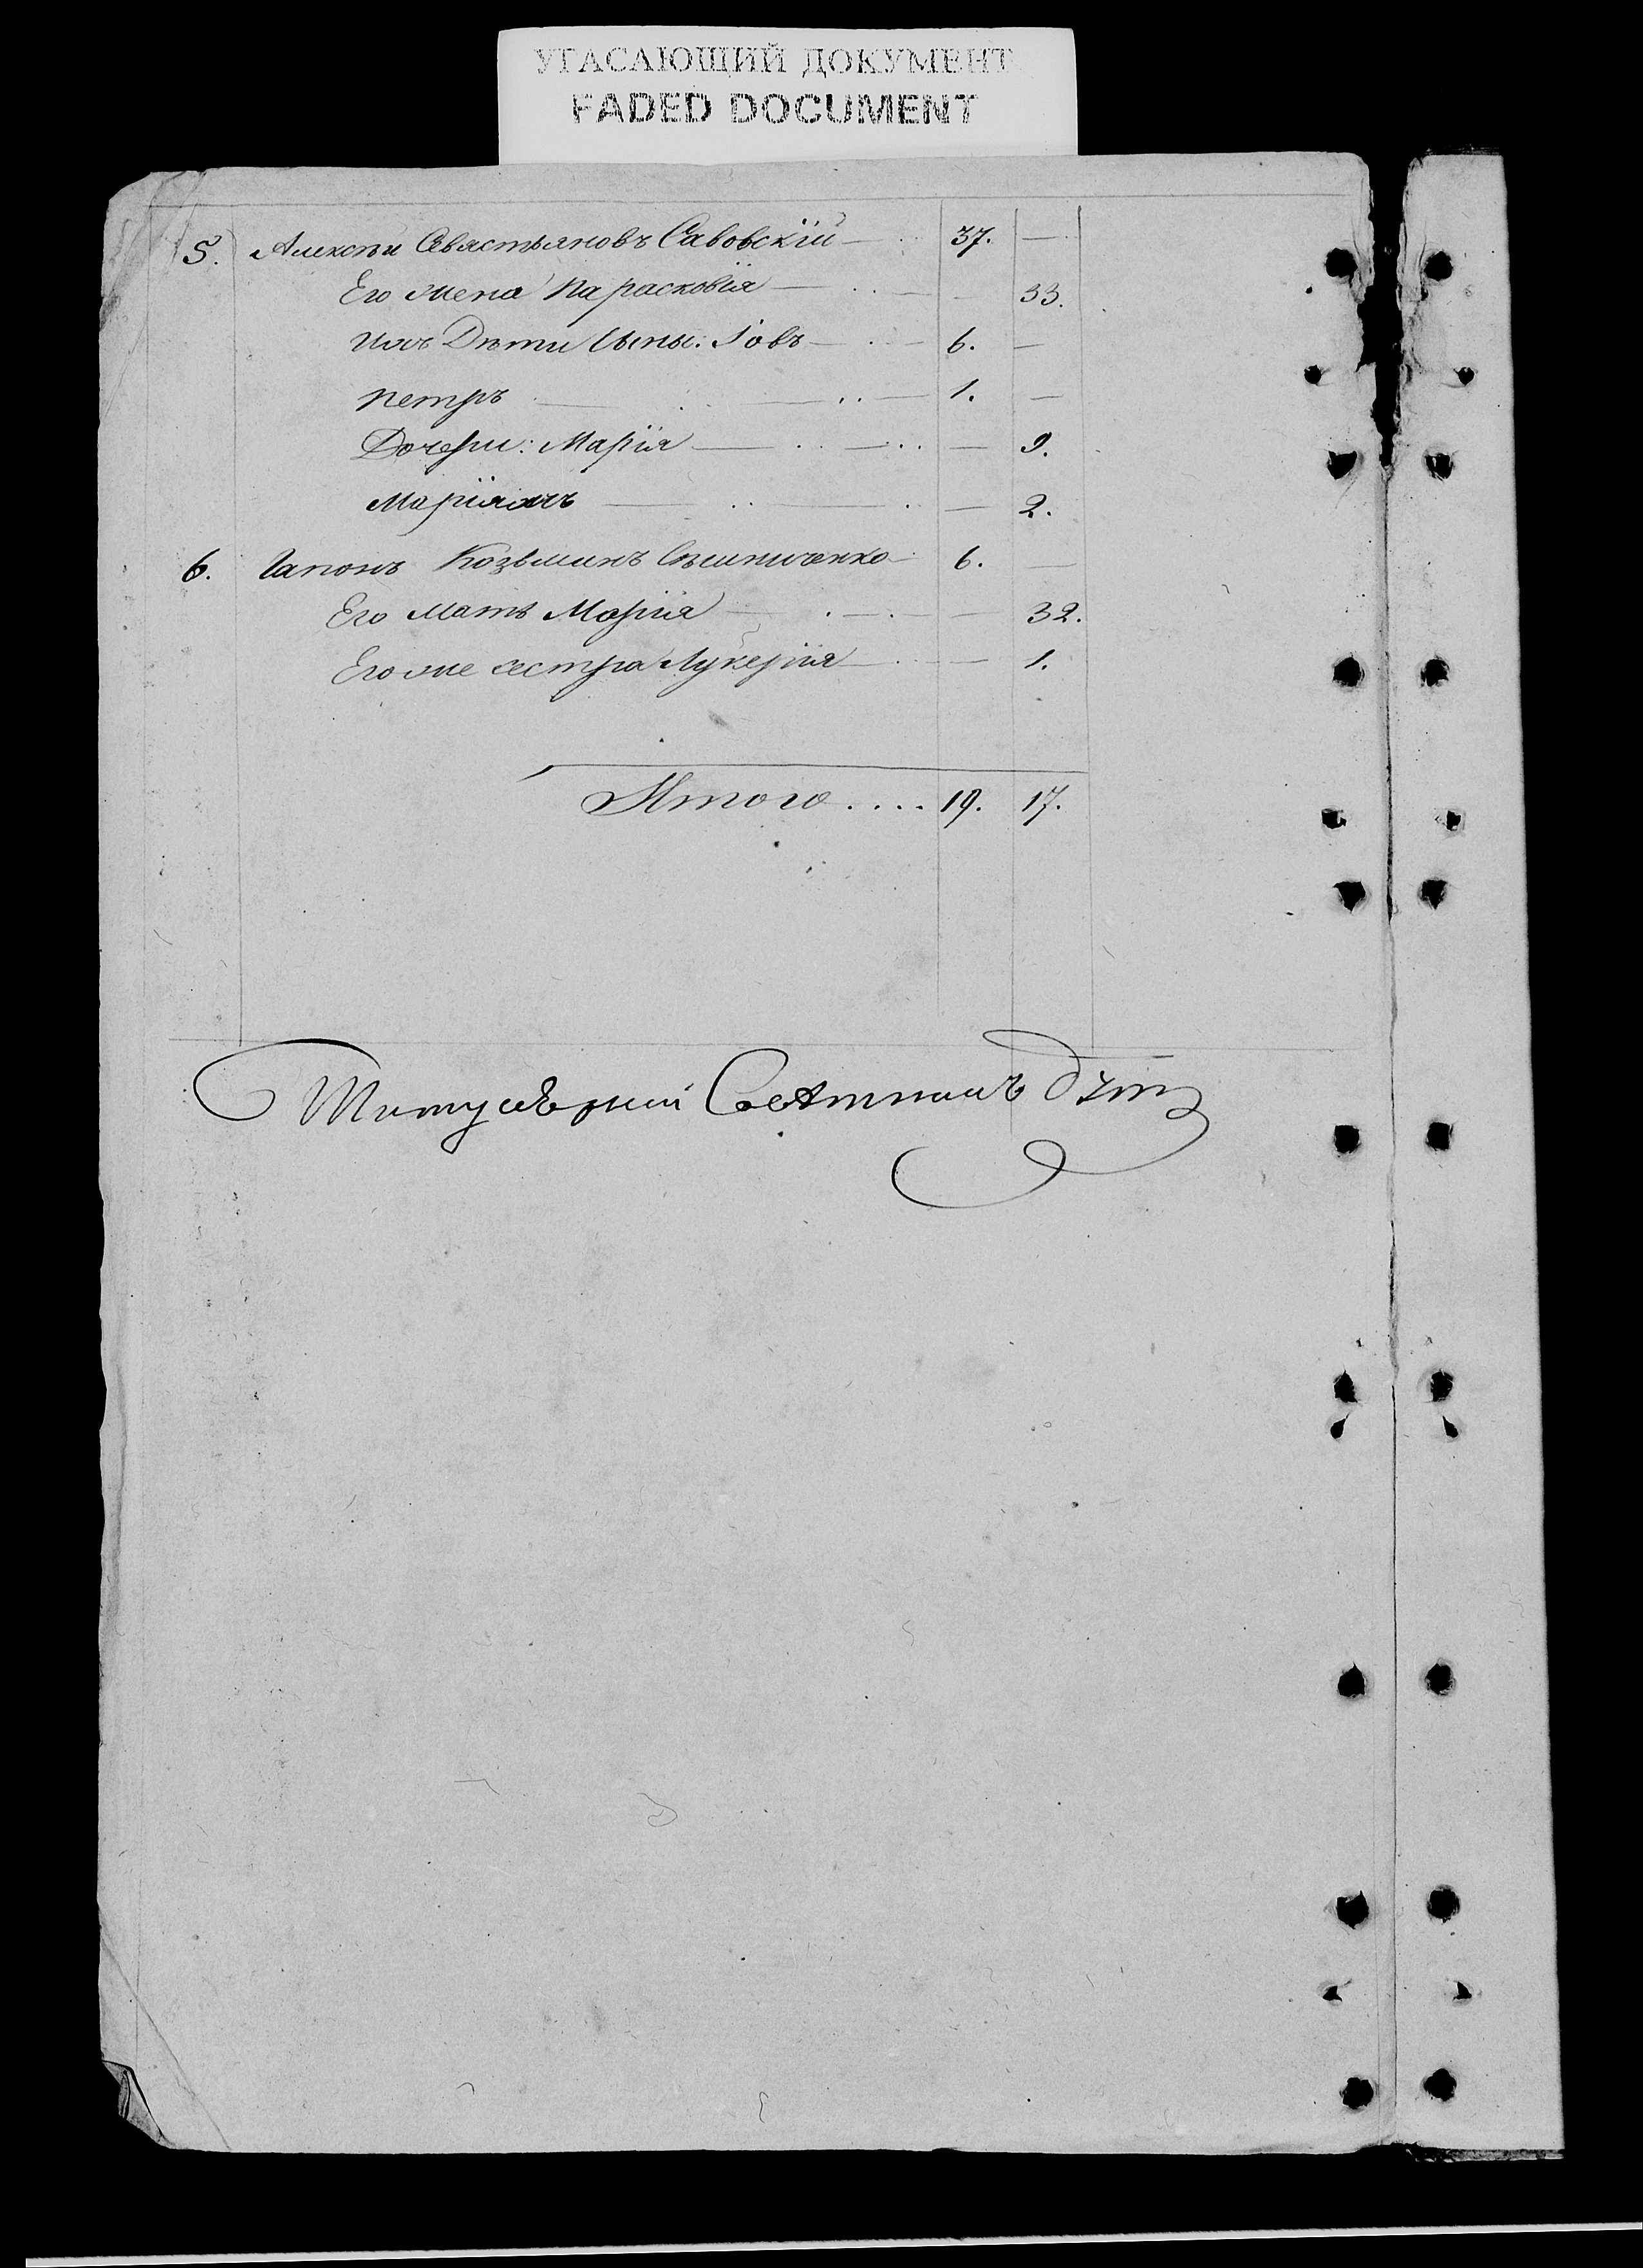 УГАСАЮЩИЙ ДОКУМЕНТ
FADED DOCUMENT
5. Алексѣи Севастьяновъ Савовскій 37. —
Его жена Парасковія — 33.
Ихъ Дѣти Сыны: Іовъ 6. —
Петръ 1. —
Дочери: Марія — 9.
Маріямъ — 2.
6. Гапонъ Козьминъ 6. —
Его мать Марія — 32.
Его же сестра Лукерія — 1.
Итого .... 19. 17.
Титулярный Советникъ